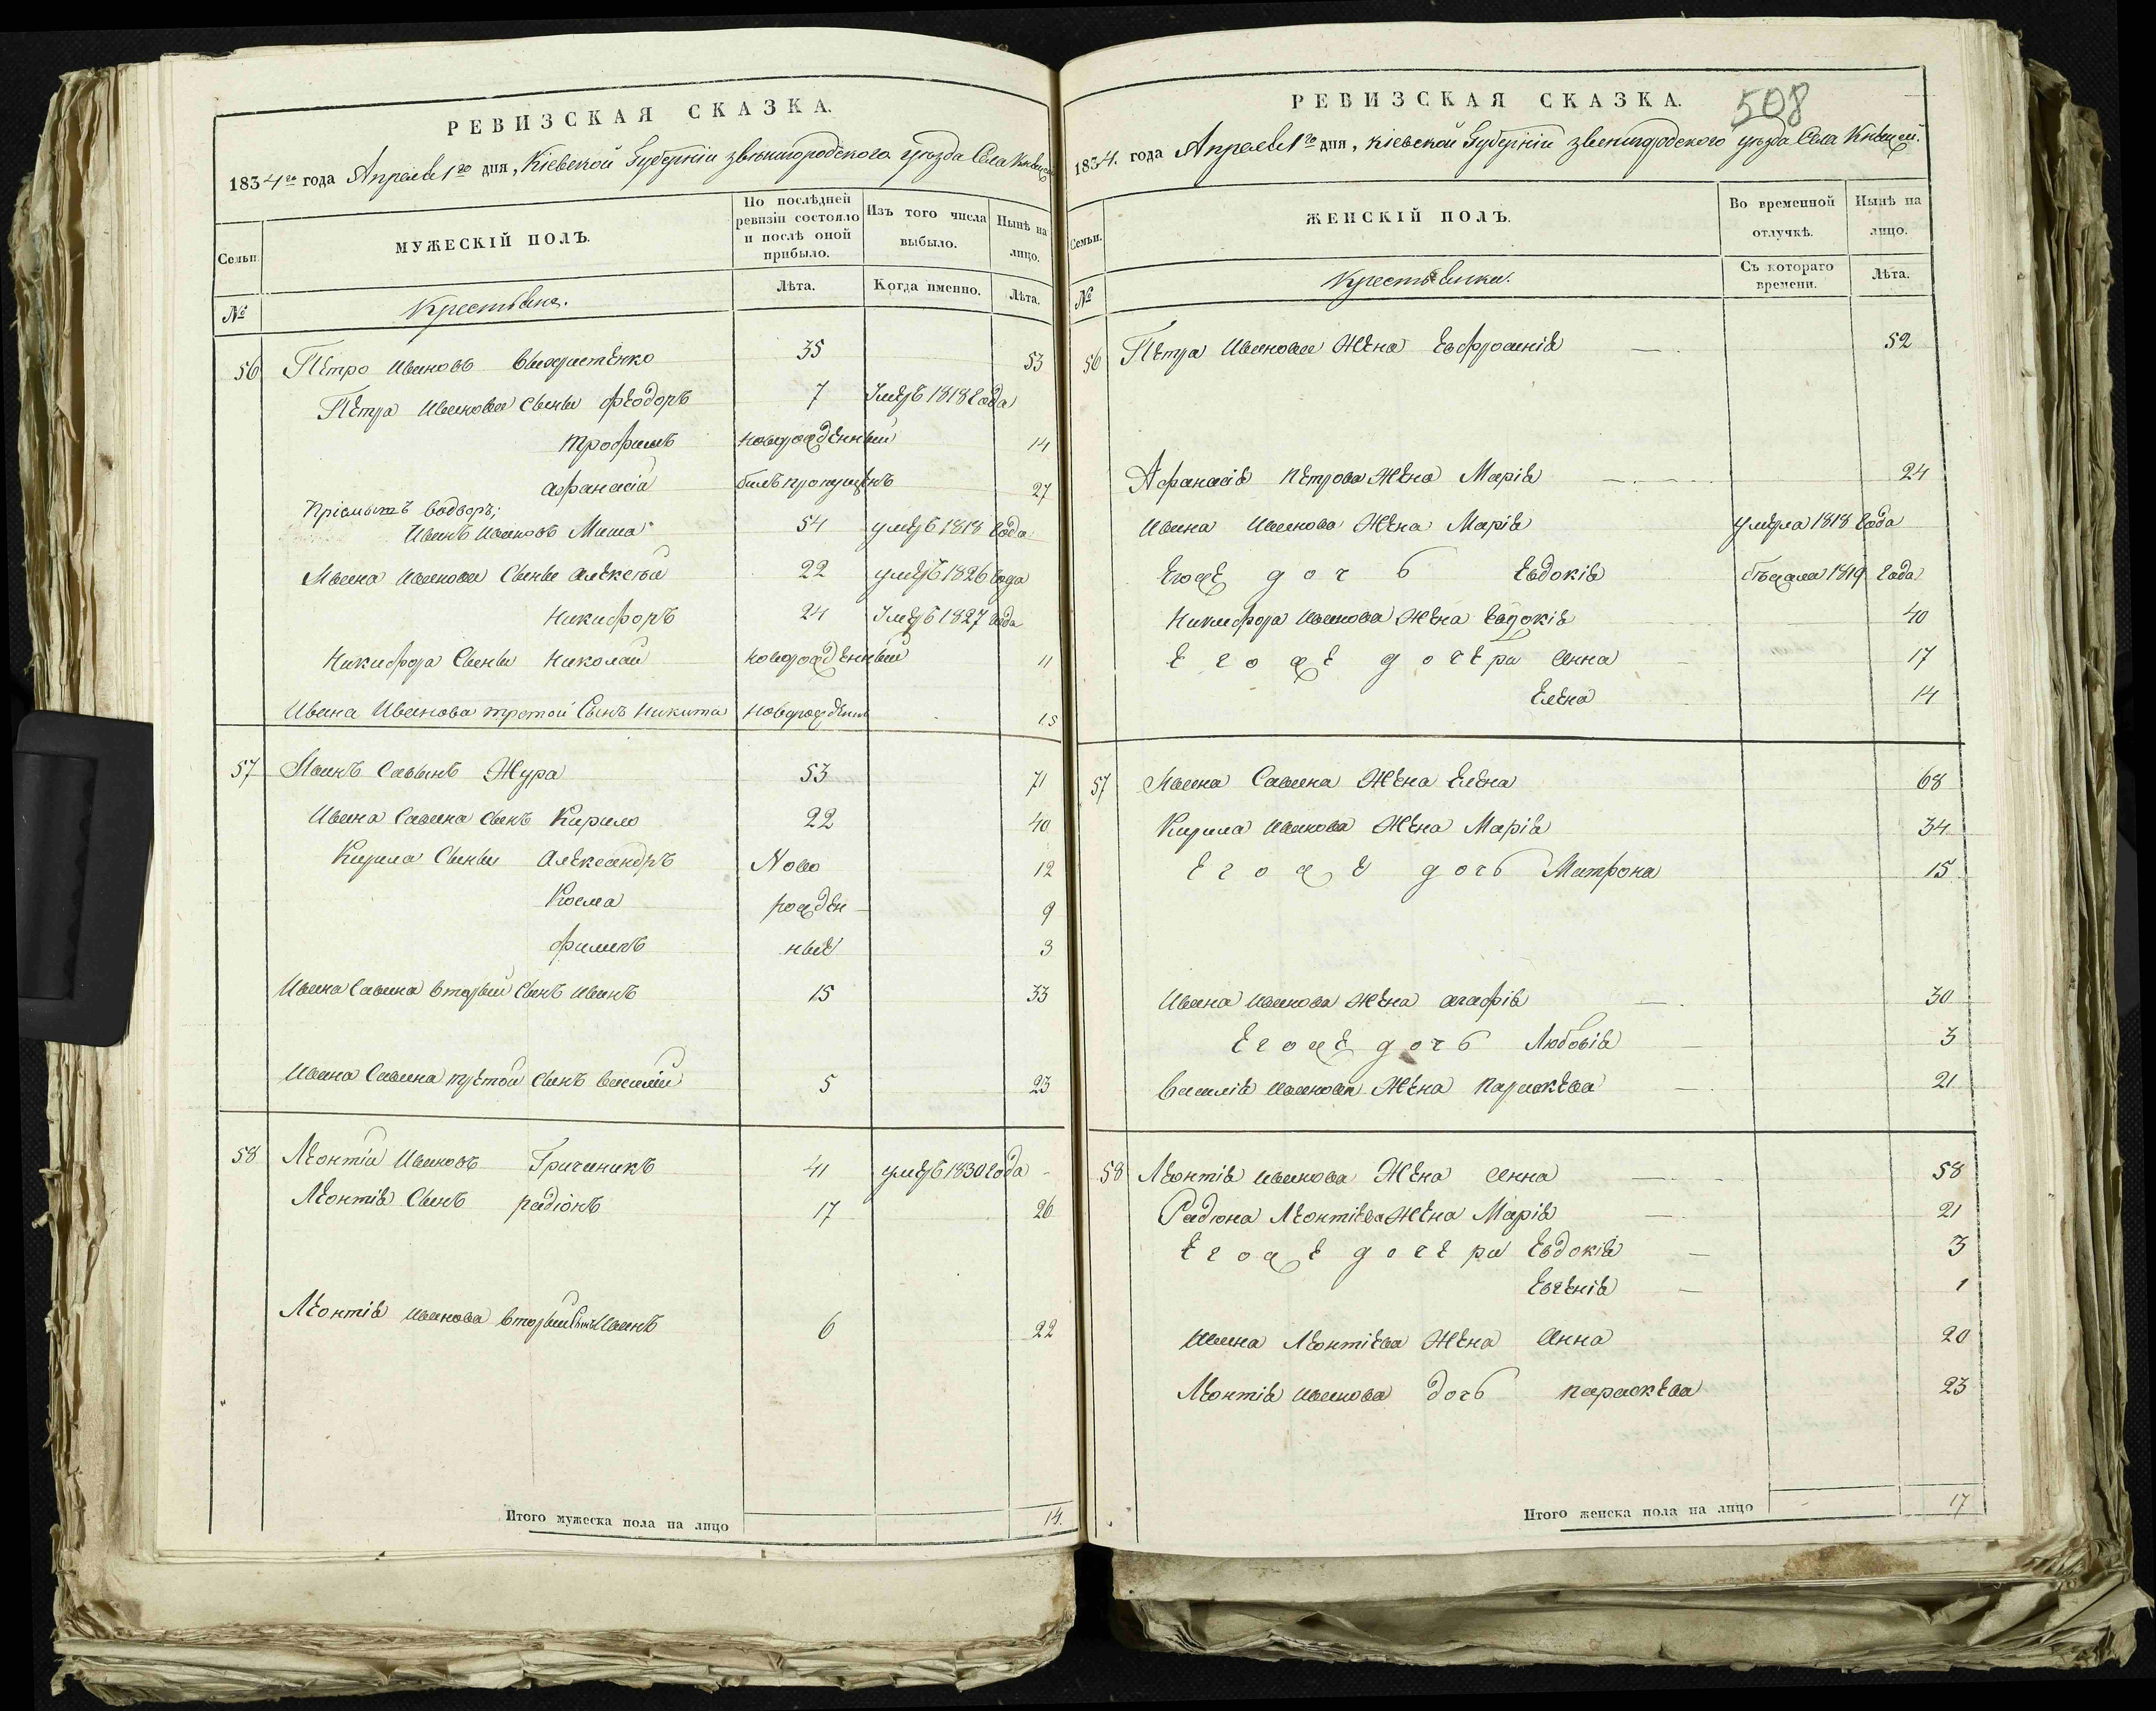 РЕВИЗСКАЯ СКАЗКА.
1834го года Апреля 1го дня, Кіевской Губерніи звенигородского уезда Села
Семьи.
МУЖЕСКІЙ ПОЛЪ.
По послѣдней ревизіи состояло и послѣ оной прибыло.
Изъ того числа выбыло.
Нынѣ на лицо.
№
Крестьяне.
Лѣта.
Когда именно.
Лѣта.
56 Петро Ивановъ 35 53
Петра Иванова Сыны феодоръ 7 Умеръ 1818 года
трофимъ новорожденный 14
афанасій билъ пропущенъ 27
Пріемышъ
Иванъ Ивановъ 54 умеръ 1818 года
Ивана Иванова Сыны алексей 22 умеръ 1826 года
Никифоръ 24 Умеръ 1827 года
Никифора Сыны Николай новорожденный 11
Ивана Иванова третой Сынъ Никита новорожден 15
57 Иванъ Савынъ Жура 53 71
Ивана Савина Сынъ Кирило 22 40
Кирила Сыны Александръ Ново 12
Косма рожден 9 
филипъ ные 3
Ивана Савина вторый Сынъ Иванъ 15 33
Ивана Савина третой Сынъ василій 5 23
58 Леонтій Ивановъ Гричиникъ 41 умеръ 1830 года
Леонтія Сынъ радіонъ 17 26
Леонтія Иванова вторый Сынъ Иванъ 6 22
Итого мужеска пола на лицо 14.
508
РЕВИЗСКАЯ СКАЗКА.
1834. года Апреля 1го дня, Кіевской Губерніи звенигородского уезда Села
Семьи.
ЖЕНСКІЙ ПОЛЪ.
Во временной отлучкѣ.
Нынѣ на лицо.
№
Крестьянки.
Съ котораго времени.
Лѣта.
56 Петра Иванова Жена Евфросинія 52
Афанасія Петрова Жена Марія 24
Ивана Иванова Жена Марія умерла 1818 года
Егоже дочь Евдокія 1819 года
Никифора Иванова Жена Евдокія 40
Егоже дочери Анна 17
Елена 14
57 Ивана Савина Жена Елена 68
Кирила Иванова Жена Марія 34
Егоже дочь Матрона 15
Ивана Иванова Жена агафія 30
Егоже дочь Любовія 3
василія Иванова Жена параскева 21
58 Леонтія Иванова Жена Анна 58
Радіона Леонтіева Жена Марія 21
Егоже дочери Евдокія 3
Евгенія 1
Ивана Леонтіева Жена Анна 20
Леонтія Иванова дочь параскева 23
Итого женска пола на лицо 17